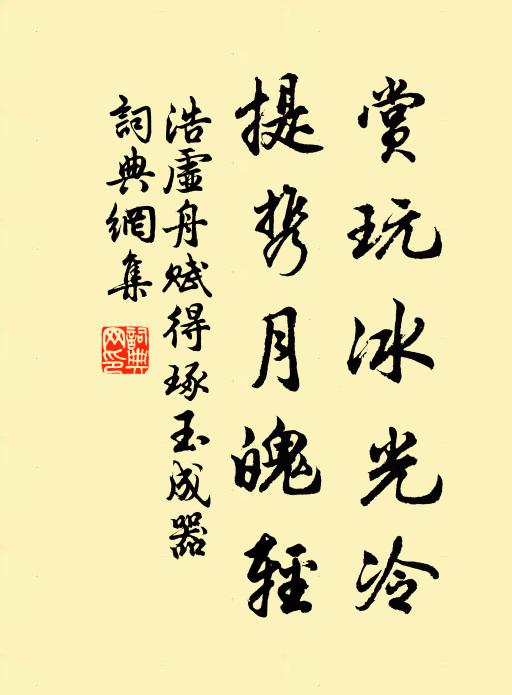 賞玩冰光冷
提携月魄輕
浩虛舟賦得琢玉成器
詞典網集
詞典網印